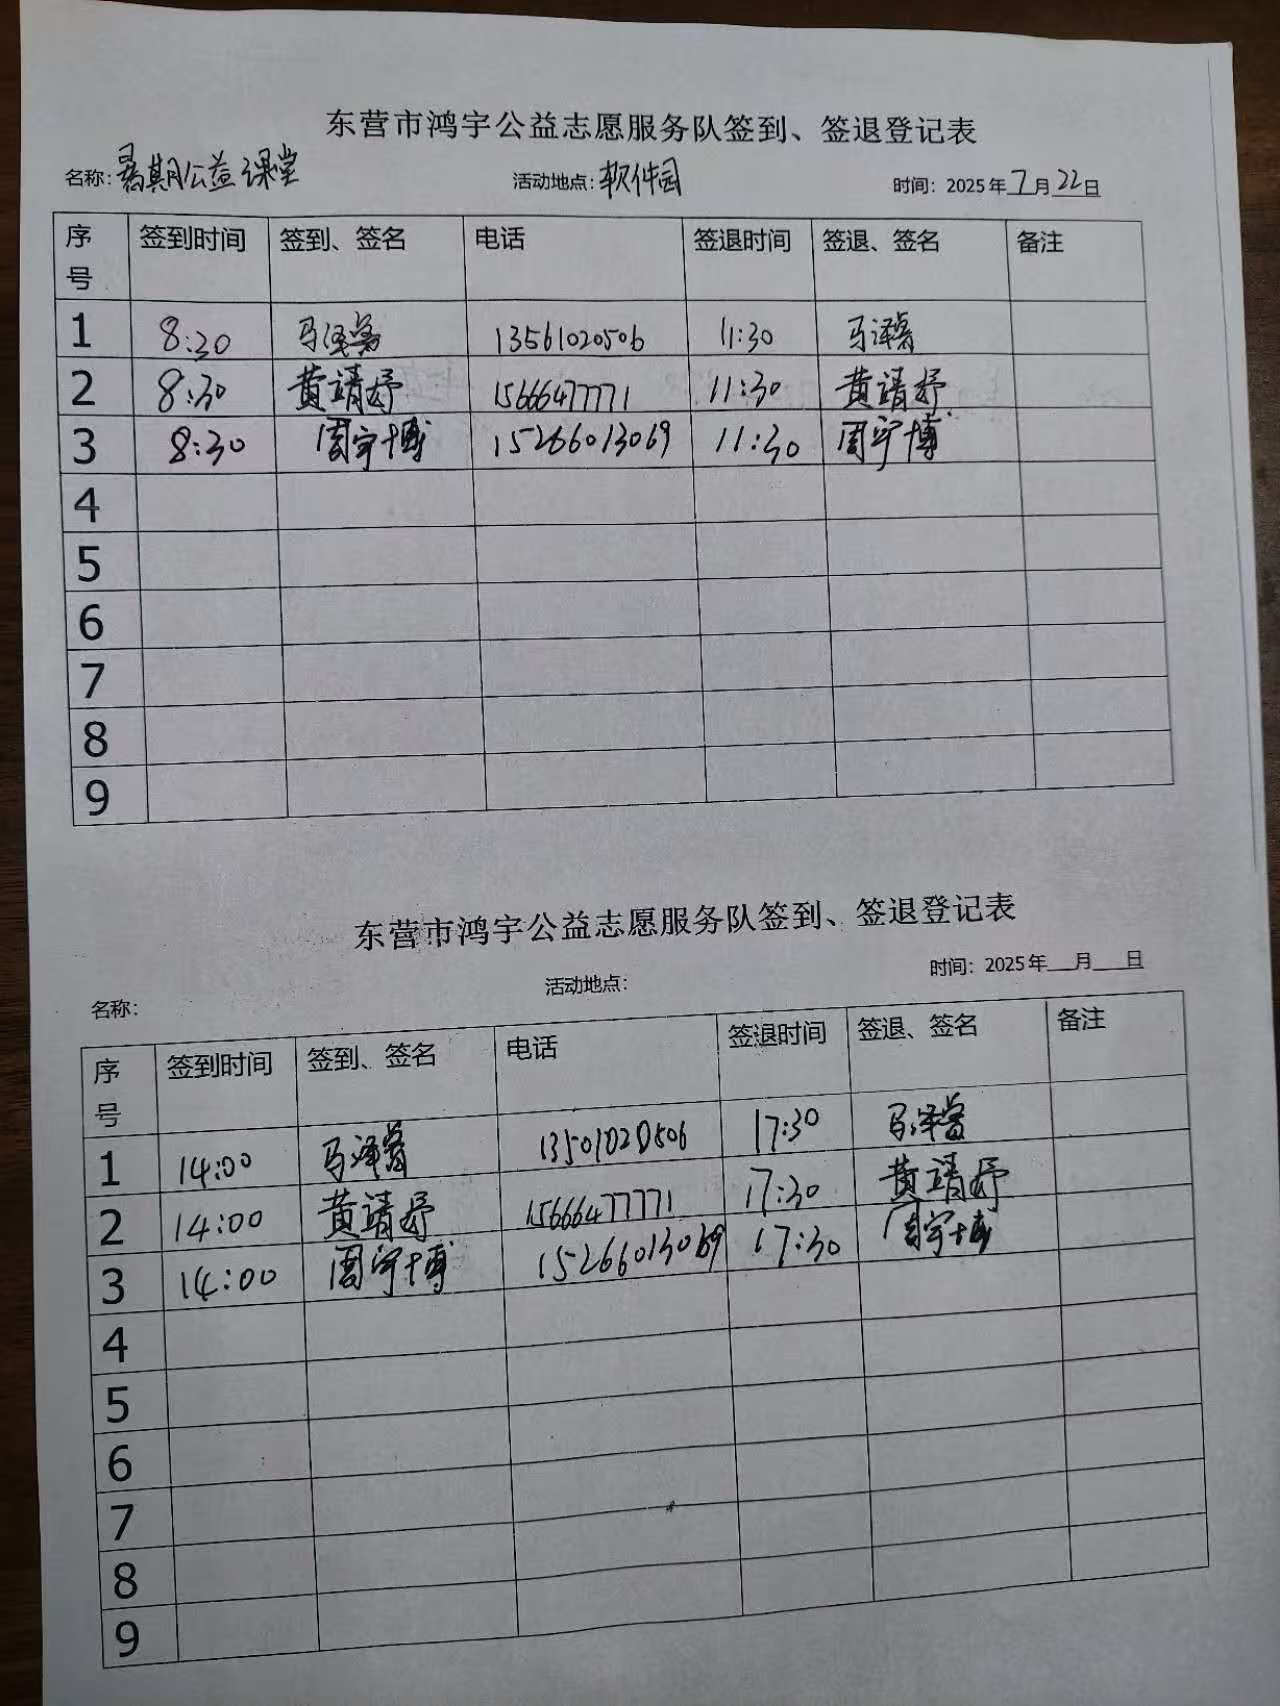 东营市鸿宇公益志愿服务队签到、签退登记表
名称：暑期公益课堂 活动地点：软件园 时间：2025年7月22日
序号 签到时间 签到、签名 电话 签退时间 签退、签名 备注
1 8:30 马泽 13561020506 11:30 马泽
2 8:30 黄靖妤 15666477771 11:30 黄靖妤
3 8:30 周宇博 15266013069 11:30 周宇博
4
5
6
7
8
9
东营市鸿宇公益志愿服务队签到、签退登记表
名称： 活动地点： 时间：2025年___月___日
序号 签到时间 签到、签名 电话 签退时间 签退、签名 备注
1 14:00 马泽 17:30 马泽
2 14:00 黄靖妤 15666477771 17:30 黄靖妤
3 14:00 周宇博 15266013069 17:30 周宇博
4
5
6
7
8
9